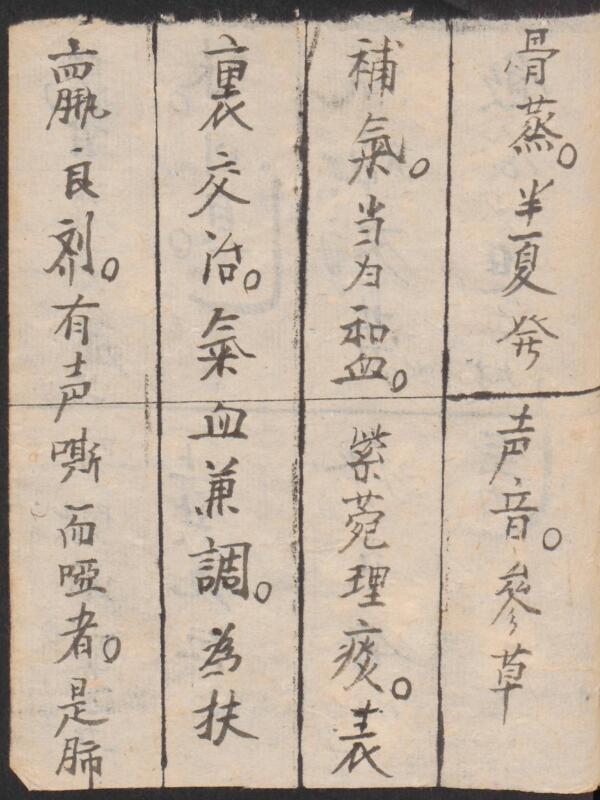 骨蒸。半夏発声音。參草
補氣。当为和血。紫菀理痰。表
裏交治。氣血兼調。為扶
羸良剤。有声嘶而啞者。是肺